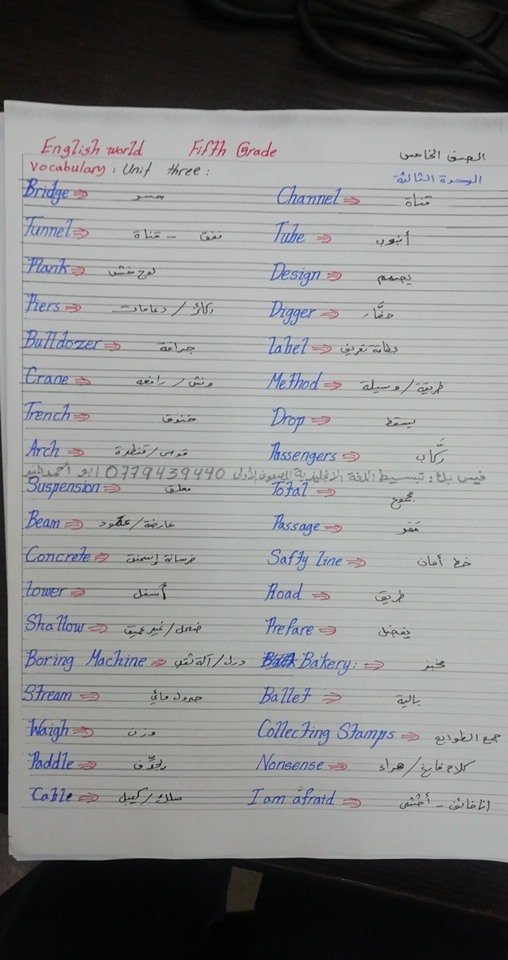 English world Fifth Grade الصف الخامس
Vocabulary: Unit three: الوحدة الثالثة
Bridge ⇒ جسر Channel ⇒ قناة
Tunnel ⇒ نفق - قناة Tube ⇒ أنبوب
Plank ⇒ لوح خشب Design ⇒ يصمم
Piers ⇒ ركائز / دعامات Digger ⇒ حفّار
Bulldozer ⇒ جرافة Label ⇒ بطاقة تعريف
Crane ⇒ ونش / رافعة Method ⇒ طريقة / وسيلة
Trench ⇒ خندق Drop ⇒ يسقط
Arch ⇒ قوس / قنطرة Passengers ⇒ ركّاب
فيس بك: تبسيط اللغة الانجليزية للصفوف الأولى 0779439440 ابو احمد
Suspension ⇒ معلق Total ⇒ مجموع
Beam ⇒ عارضة / عمود Passage ⇒ ممر
Concrete ⇒ خرسانة إسمنت Safty line ⇒ خط أمان
Lower ⇒ أسفل Road ⇒ طريق
Shallow ⇒ ضحل / غير عميق Prefare ⇒ يفضل
Boring Machine ⇒ درل / آلة ثقب Bakery: ⇒ مخبز
Stream ⇒ جدول مائي Ballet ⇒ بالية
Waigh ⇒ وزن Collecting Stamps ⇒ جمع الطوابع
Paddle ⇒ يجدّف Nonsense ⇒ كلام فارغ / هراء
Cable ⇒ سلك / كيبل I am afraid ⇒ انا خائف - أخشى